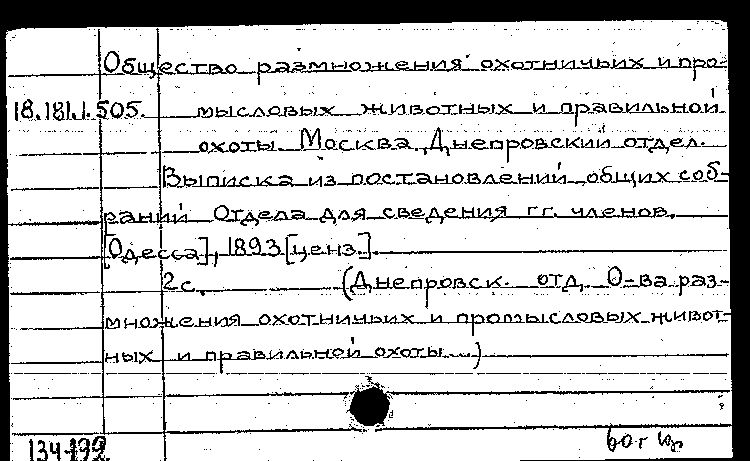 Общество размножения охотничьих и про-
18.181.1.505. мысловых животных и правильной
охоты. Москва. Днепровский отдел.
Выписка из постановлений общих соб-
раний Отдела для сведения гг. членов.
[Одесса], 1893 [ценз.].
2 с. (Днепровск. отд. О-ва раз-
множения охотничьих и промысловых живот-
ных и правильной охоты...)
134-199.